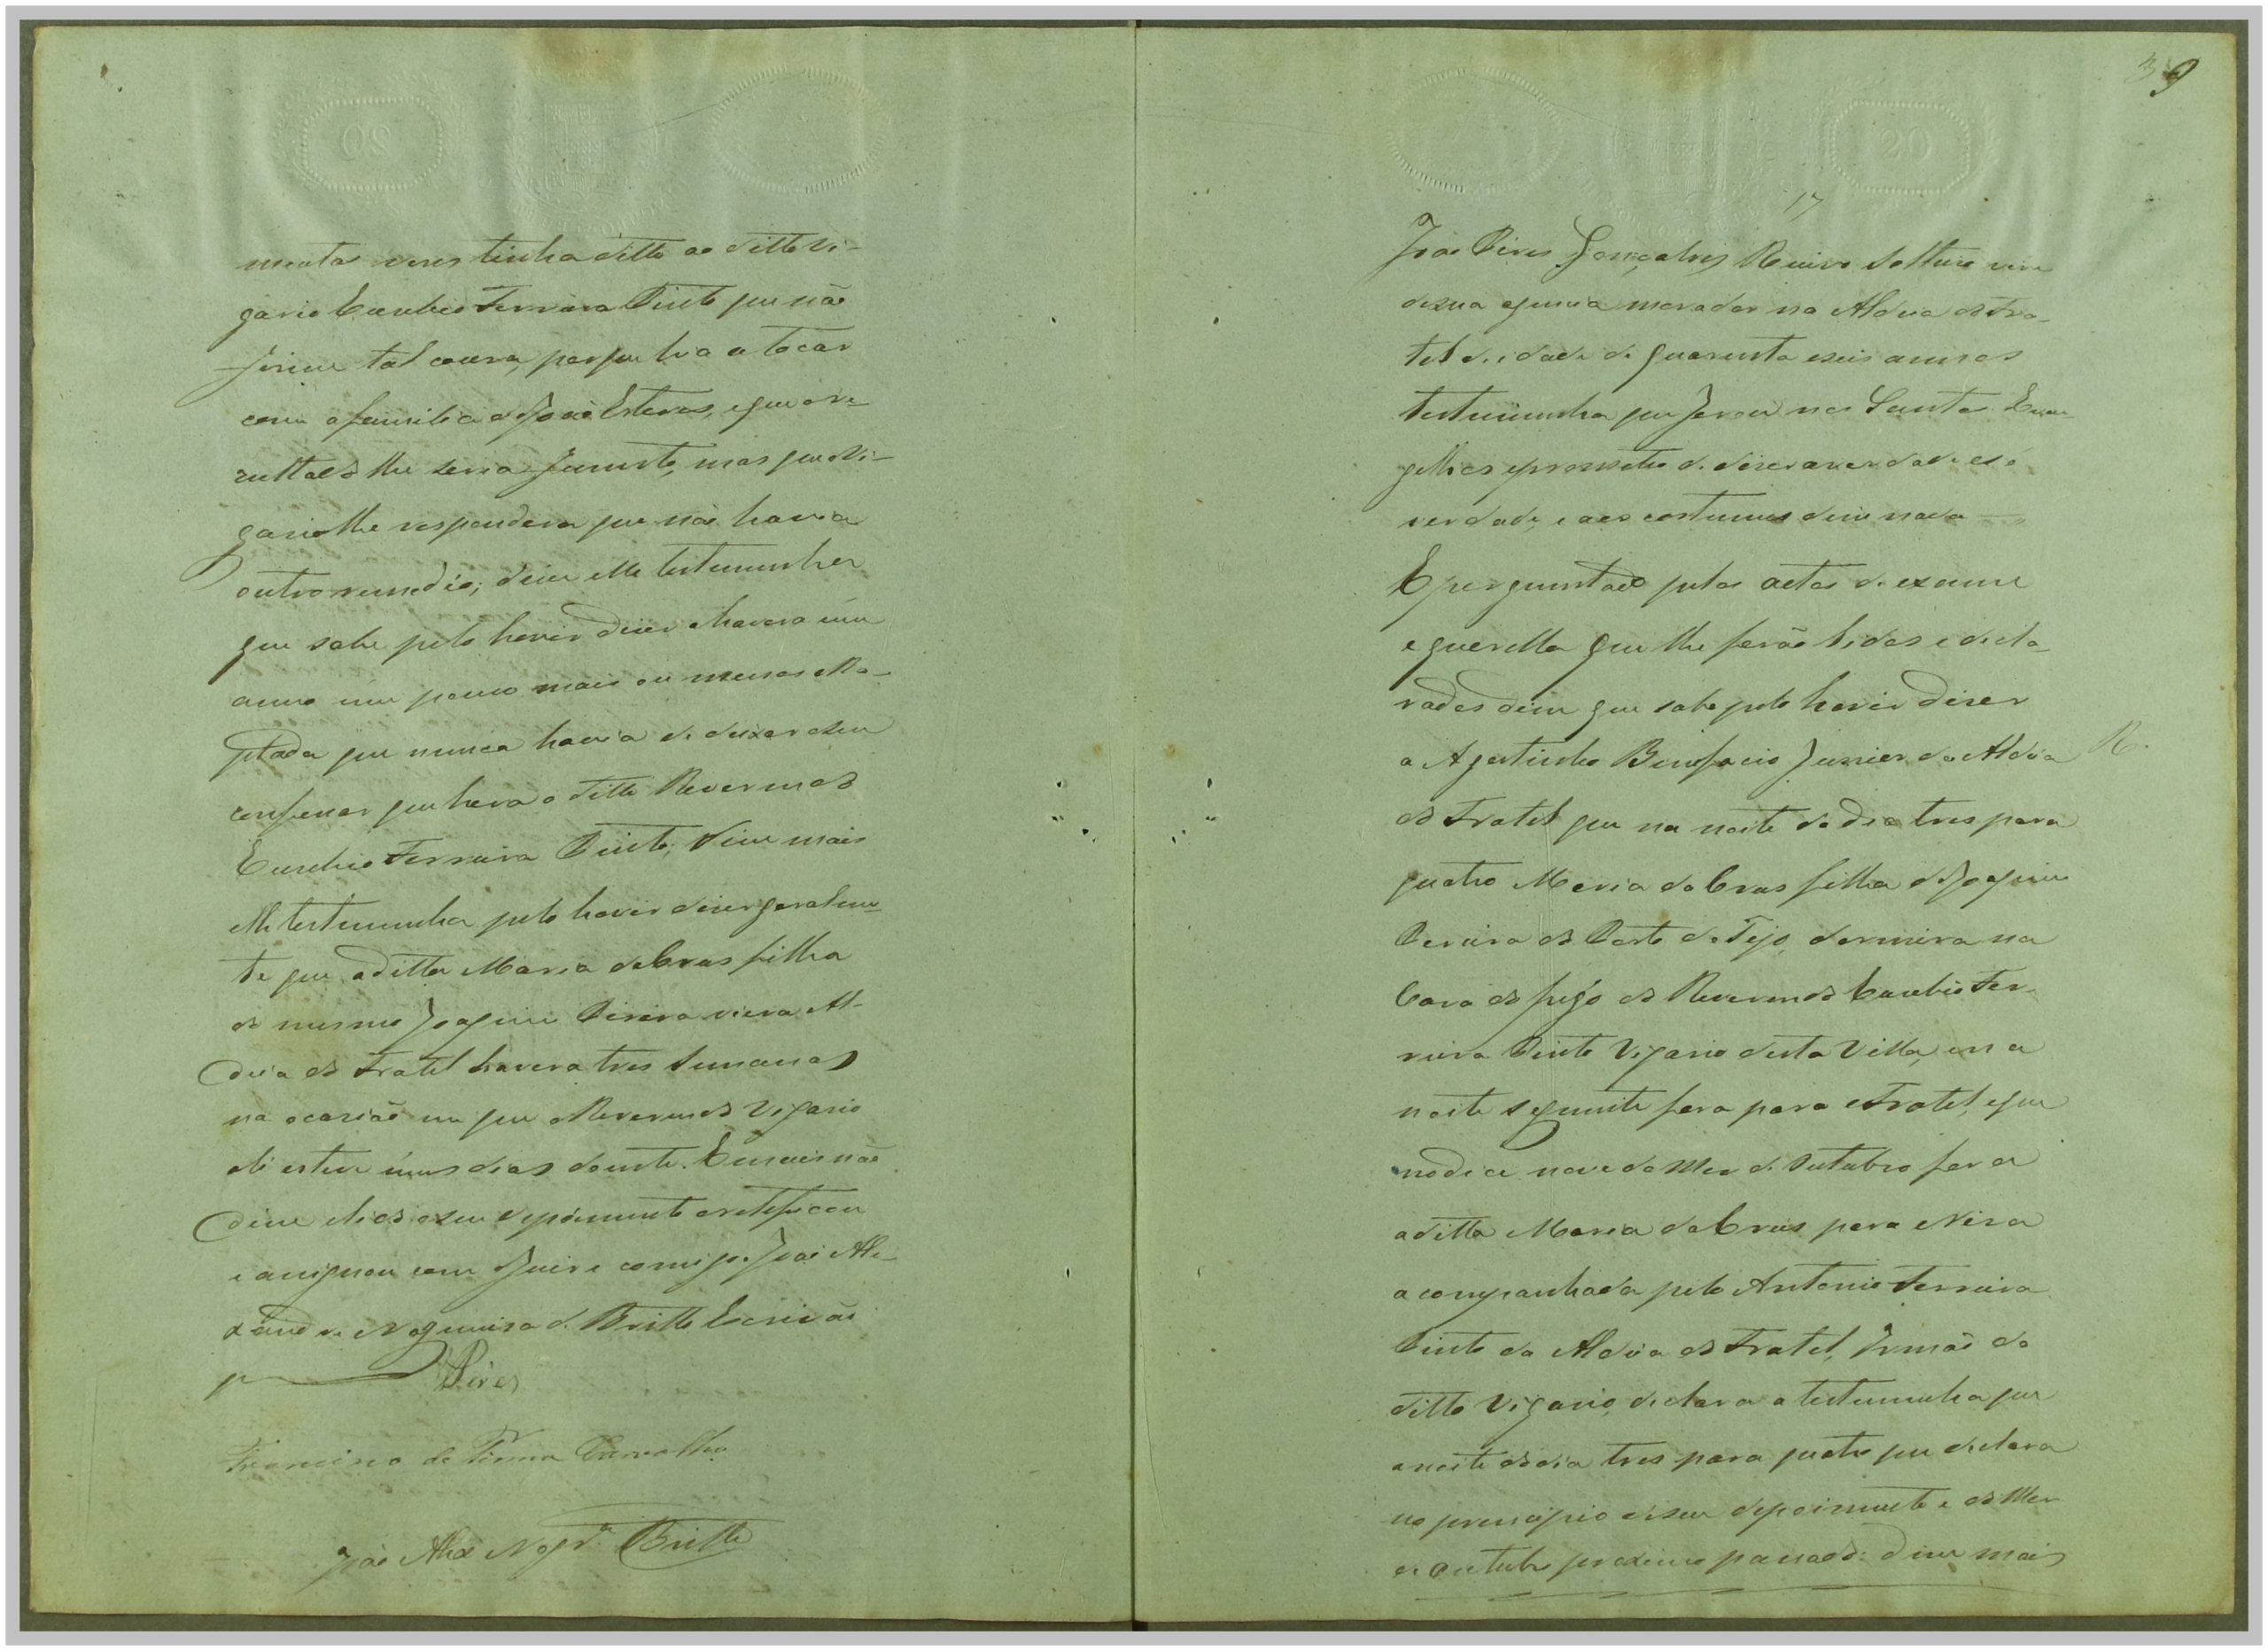 muitas vezes tinha ditto ao ditto Vi-
gario Euzebio Ferreira Pinto que não
fizesse tal couza, porque hia a tocar
com a familia de José Esteves, e que o re-
zultado lhe seria funesto, mas que o Vi-
gario lhe respondera que não havia
outro remedio; disse elle testemunha
que sabe pelo houvir dizer e haverá um
anno um pouco mais ou menos
que nunca havia de deixar o seu
confessor que hera o ditto Reverendo
Euzebio Ferreira Pinto; disse mais
elle testemunha pelo houvir dizer geralmen-
te que a ditta Maria da Cruz filha
do mesmo Joaquim Pereira viera Al-
deia do Fratel haverá tres semanas
na ocazião em que o Reverendo Vigario
ali esteve uns dias doente. E mais não
disse e lido o seu depoimento o retificou
e assignou com Juiz e comigo João Ale-
xandre Nogueira de Britto Escrivão
Pires
Francisco de Pinna Carvalho
João Alexe Nogra Britto
39
17
João Pires Gonçalves Ruivo solteiro vive
de sua agencia morador na Aldeia do Fra-
tel de idade de quarenta e seis annos
testemunha que jurou nos Santos Evan-
gelhos e prometeo de dizer a verdade e só
verdade, e aos costumes disse nada
E perguntado pelos actos de exame
e querella que lhe forão lidos e decla-
rados disse que sabe pelo houvir dizer
a Agostinho Bonifacio Junior da Aldeia
do Fratel que na noite do dia tres para
quatro Maria da Cruz filha de Joaquim
Pereira do Porto do Tejo, dormira na
Caza do fogo do Reverendo Euzebio Fer-
reira Pinto Vigario desta Villa, e na
noite seguinte fora para o Fratel, e que
no dia nove do Mez de Outubro fora
a ditta Maria da Cruz para Niza
acompanhada pelo Antonio Ferreira
Pinto da Aldeia do Fratel, Irmão do
ditto Vigario, declara a testemunha que
a noite do dia tres para quatro que declara
no principio de seu depoimento é do Mez
de Outubro proximo passado: disse mais
R.
20
20